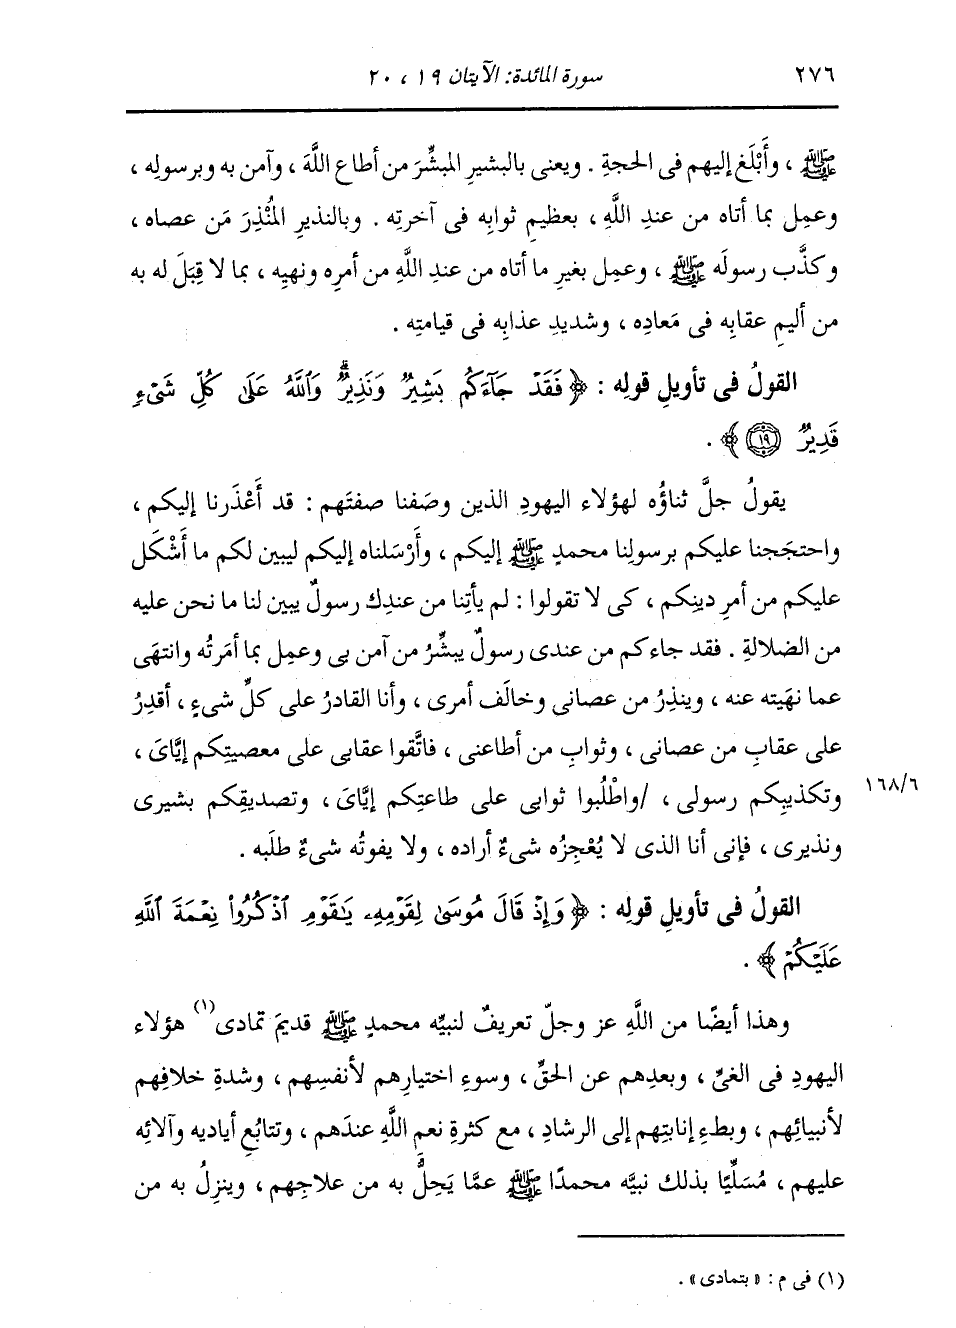 ٢٧٦ سورة المائدة: الآيتان ١٩ ، ٢٠
ﷺ ، وأَبْلَغ إليهم فى الحجةِ . ويعنى بالبشيرِ المبشِّرَ من أطاع اللَّهَ ، وآمن به وبرسولِه ،
وعمِل بما أتاه من عندِ اللَّهِ ، بعظيمِ ثوابِه فى آخرتِه . وبالنذيرِ المُنْذِرَ مَن عصاه ،
وكذَّب رسولَه ﷺ ، وعمِل بغيرِ ما أتاه من عندِ اللَّهِ من أمرِه ونهيِه ، بما لا قِبَلَ له به
من أليمِ عقابِه فى مَعادِه ، وشديدِ عذابِه فى قيامتِه .
القولُ فى تأويلِ قولِه : ﴿ فَقَدْ جَآءَكُم بَشِيرٌ وَنَذِيرٌ وَٱللَّهُ عَلَىٰ كُلِّ شَىْءٍ
قَدِيرٌ ١٩ ﴾ .
يقولُ جلَّ ثناؤُه لهؤلاء اليهودِ الذين وصَفنا صفتَهم : قد أَعْذَرنا إليكم ،
واحتجَجنا عليكم برسولِنا محمدٍ ﷺ إليكم ، وأَرْسَلناه إليكم ليبين لكم ما أَشْكَل
عليكم من أمرِ دينِكم ، كى لا تقولوا : لم يأتِنا من عندِك رسولٌ يبين لنا ما نحن عليه
من الضلالةِ . فقد جاءكم من عندى رسولٌ يبشِّرُ من آمن بى وعمِل بما أمَرتُه وانتهَى
عما نهَيته عنه ، وينذِرُ من عصانى وخالَف أمرى ، وأنا القادرُ على كلِّ شىءٍ ، أقدِرُ
على عقابِ من عصانى ، وثوابِ من أطاعنى ، فاتَّقوا عقابى على معصيتِكم إيَّاىَ ،
وتكذيبِكم رسولى ، /واطْلُبوا ثوابى على طاعتِكم إيَّاىَ ، وتصديقِكم بشيرى
١٦٨/٦
ونذيرى ، فإنى أنا الذى لا يُعْجِزُه شىءٌ أراده ، ولا يفوتُه شىءٌ طلَبه .
القولُ فى تأويلِ قولِه : ﴿ وَإِذْ قَالَ مُوسَىٰ لِقَوْمِهِۦ يَٰقَوْمِ ٱذْكُرُوا۟ نِعْمَةَ ٱللَّهِ
عَلَيْكُمْ ﴾ .
وهذا أيضًا من اللَّهِ عز وجلّ تعريفٌ لنبيِّه محمدٍ ﷺ قديمَ تمادى(١) هؤلاء
اليهودِ فى الغىِّ ، وبعدِهم عن الحقِّ ، وسوءِ اختيارِهم لأنفسِهم ، وشدةِ خلافِهم
لأنبيائِهم ، وبطءِ إنابتِهم إلى الرشادِ ، مع كثرةِ نعمِ اللَّهِ عندَهم ، وتتابُعِ أياديه وآلائِه
عليهم ، مُسَلِّيًا بذلك نبيَّه محمدًا ﷺ عمَّا يَحِلُّ به من علاجِهم ، وينزِلُ به من
(١) فى م : « بتمادى » .